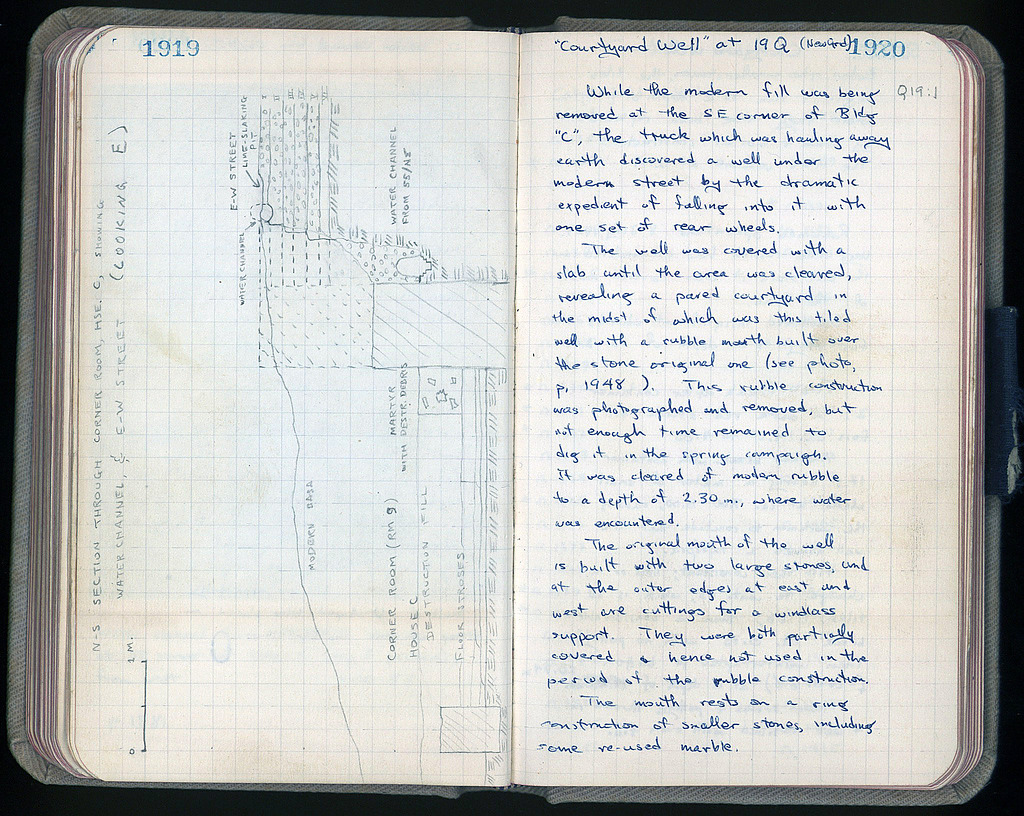 1919
N-S SECTION THROUGH CORNER ROOM, HSE. C, SHOWING
WATER CHANNEL, & E-W STREET (LOOKING E)
0 1 M.
E-W STREET
LIME-SLAKING
PIT
WATER CHANNEL
I
II
III
IV
V
VI
WATER CHANNEL
FROM
MODERN BASA
CORNER ROOM (RM 9)
HOUSE C
MARTYR
WITH DESTR. DEBRIS
DESTRUCTION FILL
FLOOR STROSES
"Courtyard Well" at 19 Q (New Grid)
1920
Q19:1
While the modern fill was being
removed at the SE corner of Bldg
"C", the truck which was hauling away
earth discovered a well under the
modern street by the dramatic
expedient of falling into it with
one set of rear wheels.
The well was covered with a
slab until the area was cleared,
revealing a paved courtyard in
the midst of which was this tiled
well with a rubble mouth built over
the stone original one (see photo,
p. 1948 ). This rubble construction
was photographed and removed, but
not enough time remained to
dig it in the spring campaign.
It was cleared of modern rubble
to a depth of 2.30 m., where water
was encountered.
The original mouth of the well
is built with two large stones, and
at the outer edges at east and
west are cuttings for a windlass
support. They were both partially
covered & hence not used in the
period of the rubble construction.
The mouth rests on a ring
construction of smaller stones, including
some re-used marble.